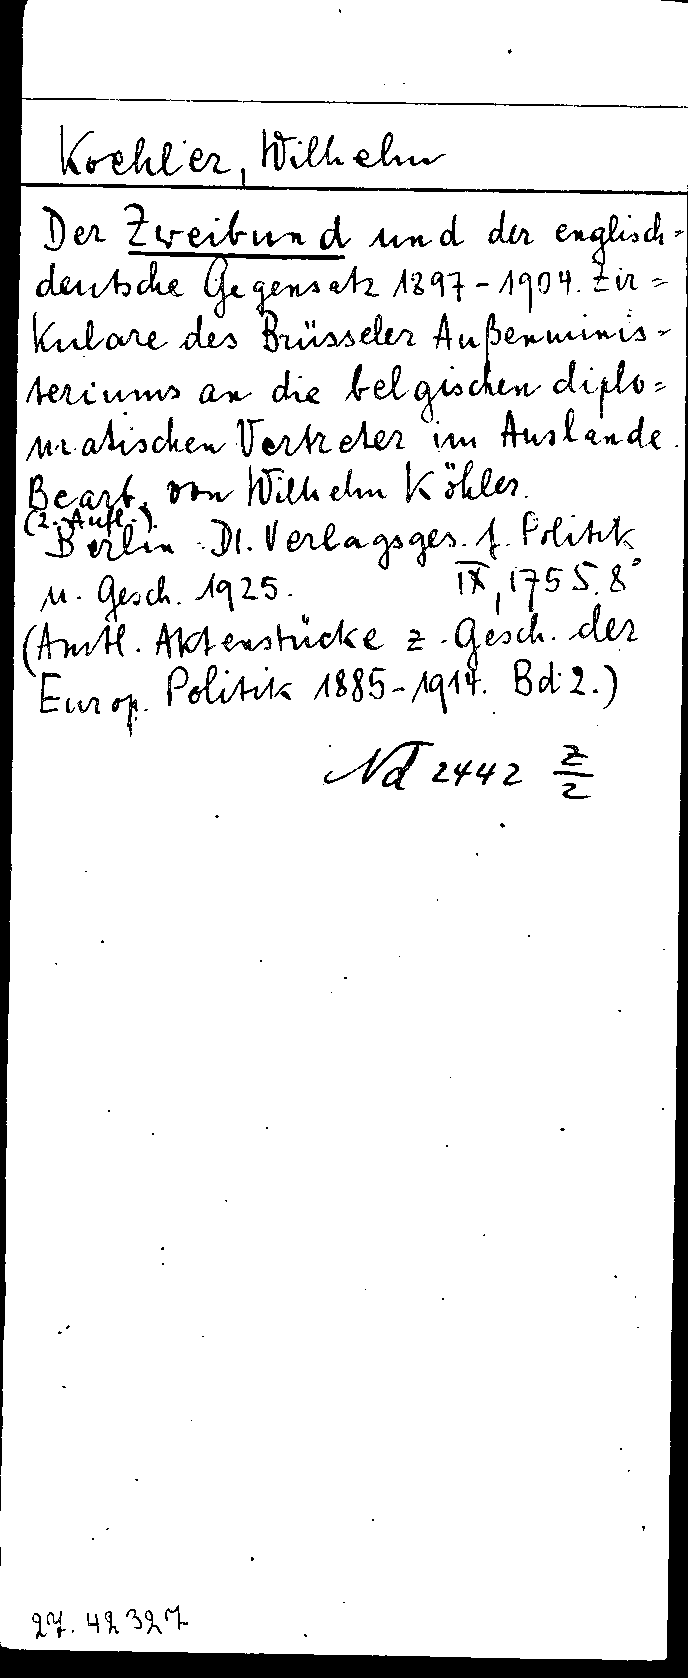 Koehler, Wilhelm
Der Zweibund und der englisch-
deutsche Gegensatz 1897-1904. Zir-
kulare des Brüsseler Außenminis-
teriums an die belgischen diplo-
matischen Vertreter im Auslande.
Bearb. von Wilhelm Köhler.
(2. Aufl.).
Berlin: Dt. Verlagsges. f. Politik
u. Gesch. 1925. IX, 175 S. 8°
(Amtl. Aktenstücke z. Gesch. der
Europ. Politik 1885-1914. Bd. 2.)
Nd 2442 z/2
27. 42327